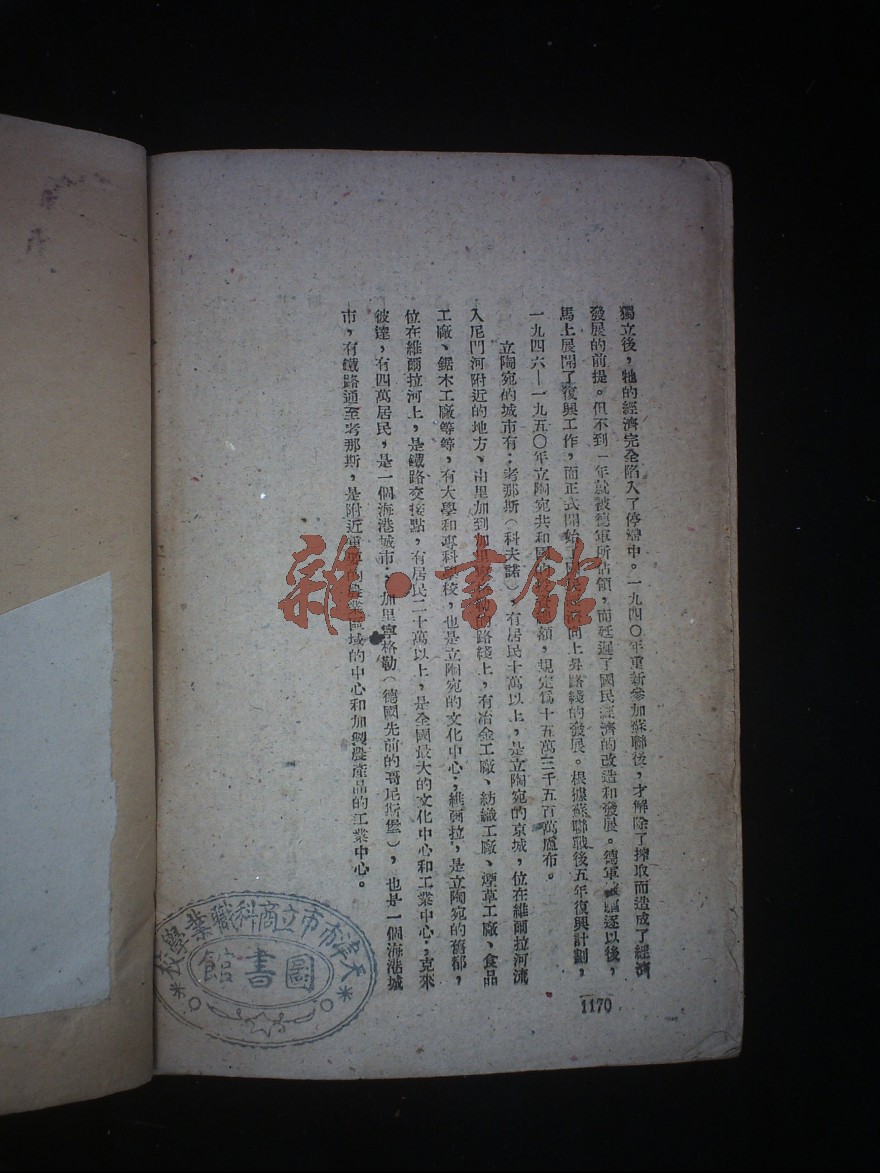 獨立後，牠的經濟完全陷入了停滯中。一九四〇年重新參加蘇聯後，才解除了搾取而造成了經濟
發展的前提。但不到一年就被德軍所佔領，而延遲了國民經濟的改造和發展。德軍被驅逐以後，
馬上展開了復興工作，而正式開始了國民經濟向上昇路綫的發展。根據蘇聯戰後五年復興計劃，
一九四六—一九五〇年立陶宛共和國 額，規定爲十五萬三千五百萬盧布。
立陶宛的城市有：考那斯（科夫諾），有居民十萬以上，是立陶宛的京城，位在維爾拉河流
入尼門河附近的地方、由里加到加里寧格勒的路綫上，有冶金工廠、紡織工廠、煙草工廠、食品
工廠、鋸木工廠等等，有大學和專科學校，也是立陶宛的文化中心；維爾拉，是立陶宛的舊都，
位在維爾拉河上，是鐵路交接點，有居民二十萬以上，是全國最大的文化中心和工業中心；克來
彼達，有四萬居民，是一個海港城市；加里寧格勒（德國先前的哥尼斯堡），也是一個海港城
市，有鐵路通至考那斯，是附近重要的農業區域的中心和加製農產品的工業中心。
1170
天津市市立商科職業學校
圖書館
雜·書館